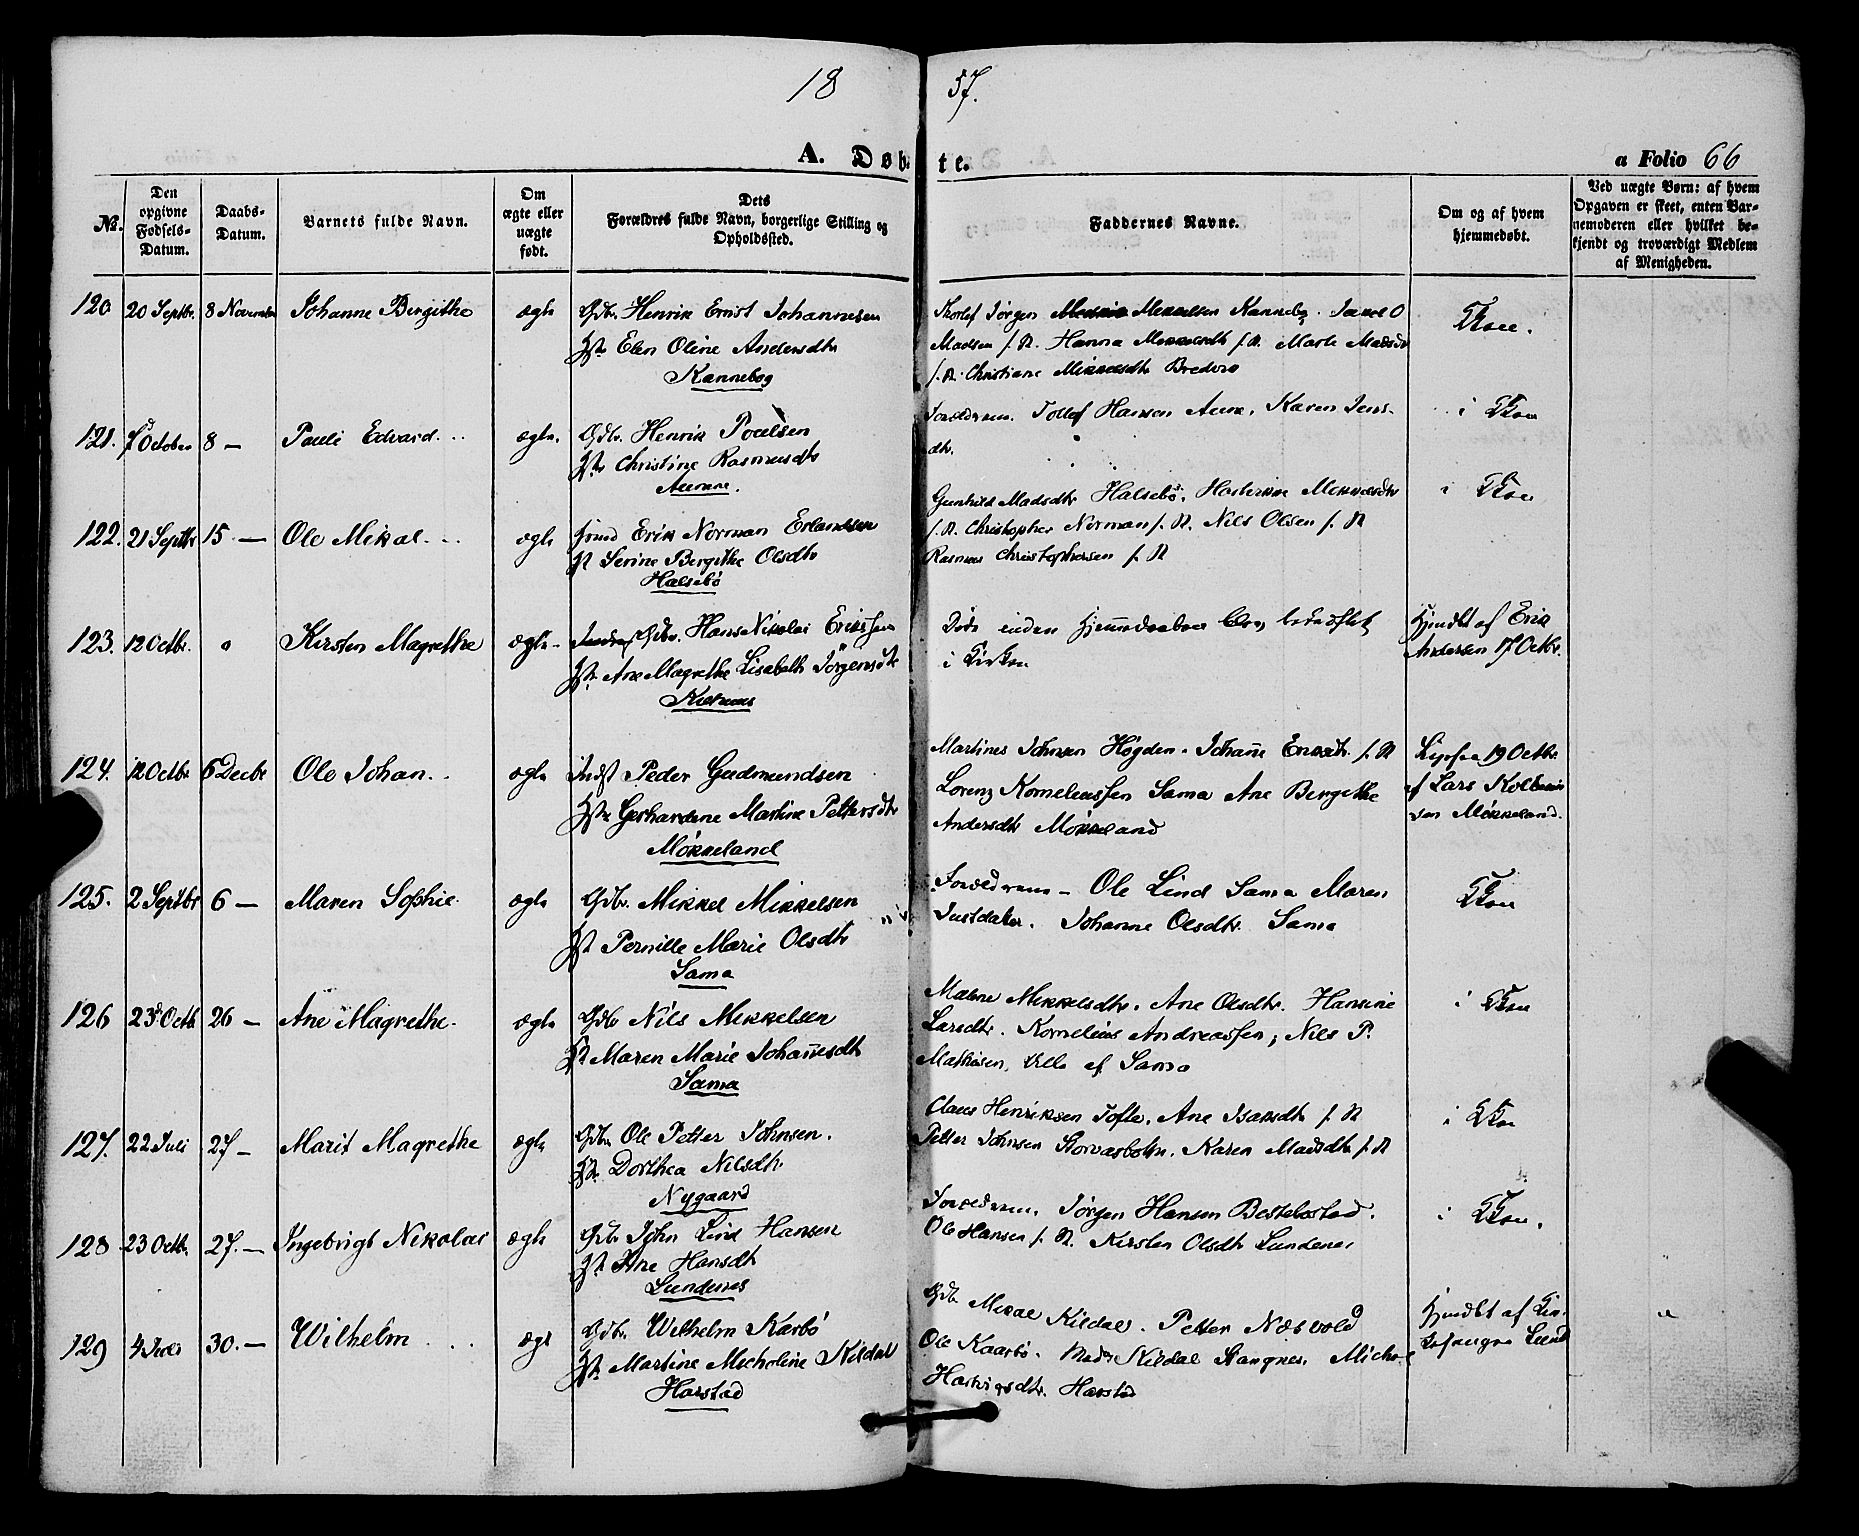 18 57.
A. Døbte.
a Folio 66
No.
Den opgivne Fødsels-Datum.
Daabs-Datum.
Barnets fulde Navn.
Om ægte eller uægte født.
Dets Forældres fulde Navn, borgerlige Stilling og Opholdssted.
Faddernes Navne.
Om og af hvem hjemmedøbt.
Ved uægte Børn: af hvem Opgaven er skeet, enten Barnemoderen eller hvilket bekjendt og troværdigt Medlem af Menigheden.
120. 20 Septbr. 8 November Johanne Bergithe ægte Gdbr. Henrik Ernst Johannesen
Hst Elen Oline Andersdtr
Kannebog
Jørgen Mekkelsen Kannebg.
Madsen f. N. Hanna Mekkelsdtr f. N. Marte Madsdtr
f. N. Christiane Mikkelsdtr
121. 7 October 8 — Pauli Edvard. ægte. Gdbr. Henrik Poelsen
Hst Christine Rasmusdtr
Aunne.
Forældrene. Tollef Hansen Aune, Karen Jens-
dtr.
122. 21 Septbr 15 — Ole Mikal. ægte Erik Norman Erlandsen
Hst Serine Bergithe Olsdtr
Halsebö
Gunhild Madsdtr Halsebö. Mekkelsdtr
f. N. Christopher Norman f. N. Nils Olsen f. N
Rasmus Christophersen f. N
123. 12 Octbr. " Kirsten Magrethe ægte Gdbr. Hans Nikolai Eriksen
Hst. Ane Magrethe Lisabeth Jörgensdtr
Døde inden Hjemmedaaben blev bekræftet
i Kirken
Hjmdbt af Erik
Andersen 17 Octbr.
124. 12 Octbr 6 Decbr Ole Johan. ægte Indst Peder Gudmundsen
Hst Gerhardine Martine Pettersdtr
Møkkeland
Martines Johnsen Högden. f. N
Lorenz Korneliussen Sama Ane Bergithe
Andersdtr Møkkeland
19 Octbr.
af Lars
sen Møkkeland.
125. 2 Septbr 6 — Maren Sophie. ægte Gdbr. Mikkel Mikkelsen
Hst Pernille Marie Olsdtr
Sama
Forældrene — Ole Lind Sama Maren
Johanne Olsdtr. Sama
126 23 Octb 26 — Ane Magrethe. ægte Gdbr Nils Mekkelsen
Hst Maren Marie Johannesdtr
Sama
Mekkelsdtr. Ane Olsdtr. Hansine
Larsdtr. Kornelius Andreassen, Nils P.
Mathisen, alle af Sama
127. 22 Juli 27 — Marit Magrethe ægte Gdbr Ole Petter Johnsen.
Hst. Dorthea Nilsdtr
Nygaard
Claus Henriksen Tofte, Ane Isaksdtr f. N
Petter Johnsen Storvasbotn. Karen Madsdtr f. N
128 23 Octb. 27. — Ingebrigt Nikolai ægte Gdbr John Lind Hansen
Hst Ane Hansdtr
Lundenes
Forældrene. Jörgen Hansen Bestebostad.
Ole Hansen f. N. Kirsten Olsdtr Lundenes
129 4 Juli 30. — Wilhelm ægte Gdbr. Wilhelm Karbö
Hst Martine Micholine Kildal
Harstad
Gdbr Mikal Kildal. Petter Næsvold
Ole Kaarbö. Kildal Stangnes,
Harstad
Hjmdbt af
Lund